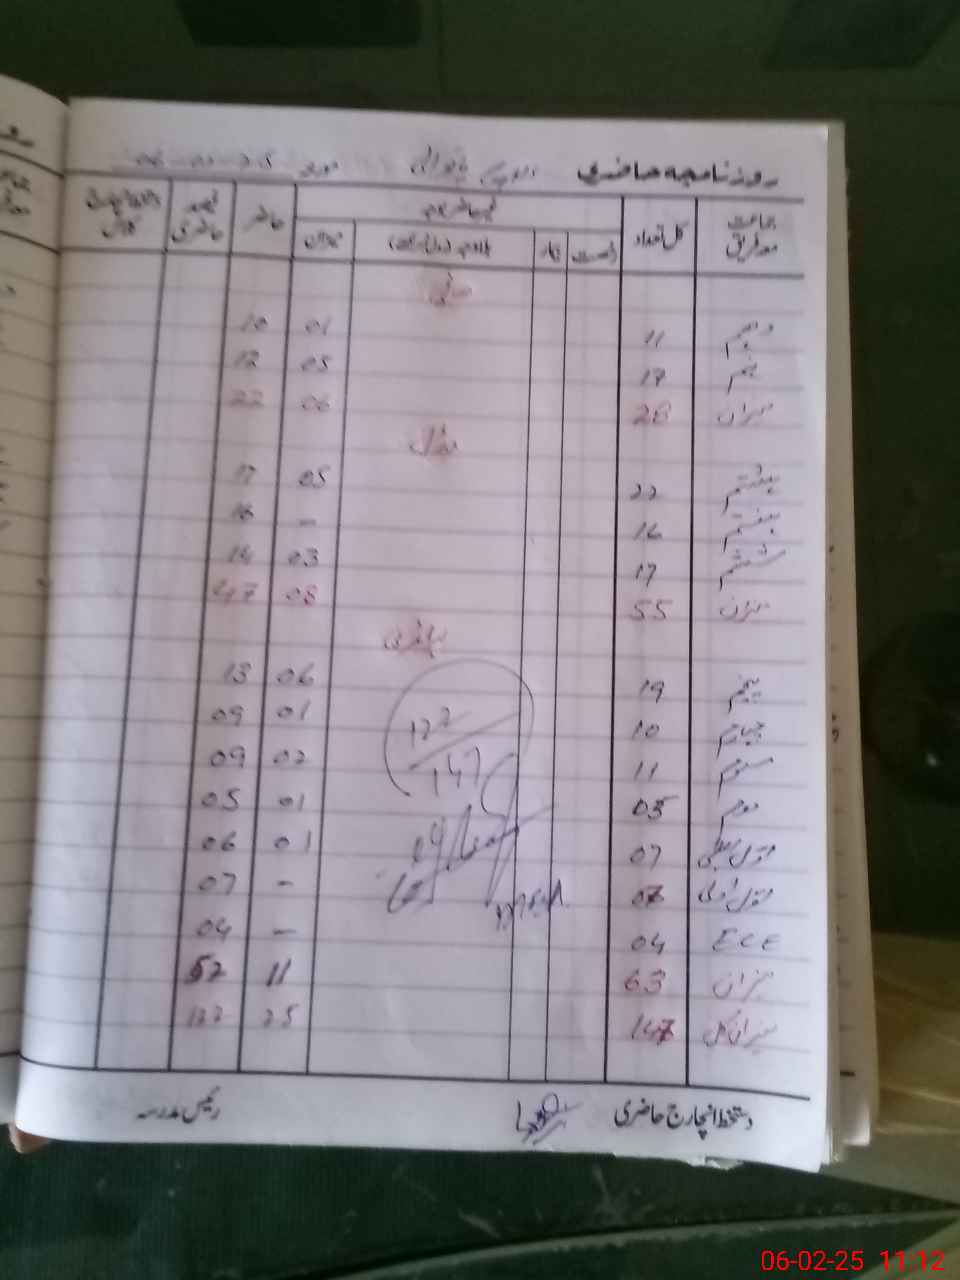 روزنامچہ حاضری
جماعت معہ فریق کل تعداد رخصت بیمار میزان حاضر فیصد حاضری دستخط انچارج کلاس
غیر حاضر بوجہ
دہم 11 01 10
نہم 17 05 12
میزان 28 06 22
مڈل
ہشتم 22 05 17
ہفتم 16 - 16
ششم 17 03 14
میزان 55 08 47
پرائمری
پنجم 19 06 13
چہارم 10 01 09
سوم 11 02 09
دوم 05 01 05
اول اعلیٰ 07 01 06
اول ادنیٰ 07 - 07
ECE 04 - 04
میزان 63 11 52
میزان کل 147 25 122
122
147
دستخط انچارج حاضری رئیس مدرسہ
06-02-25 11:12